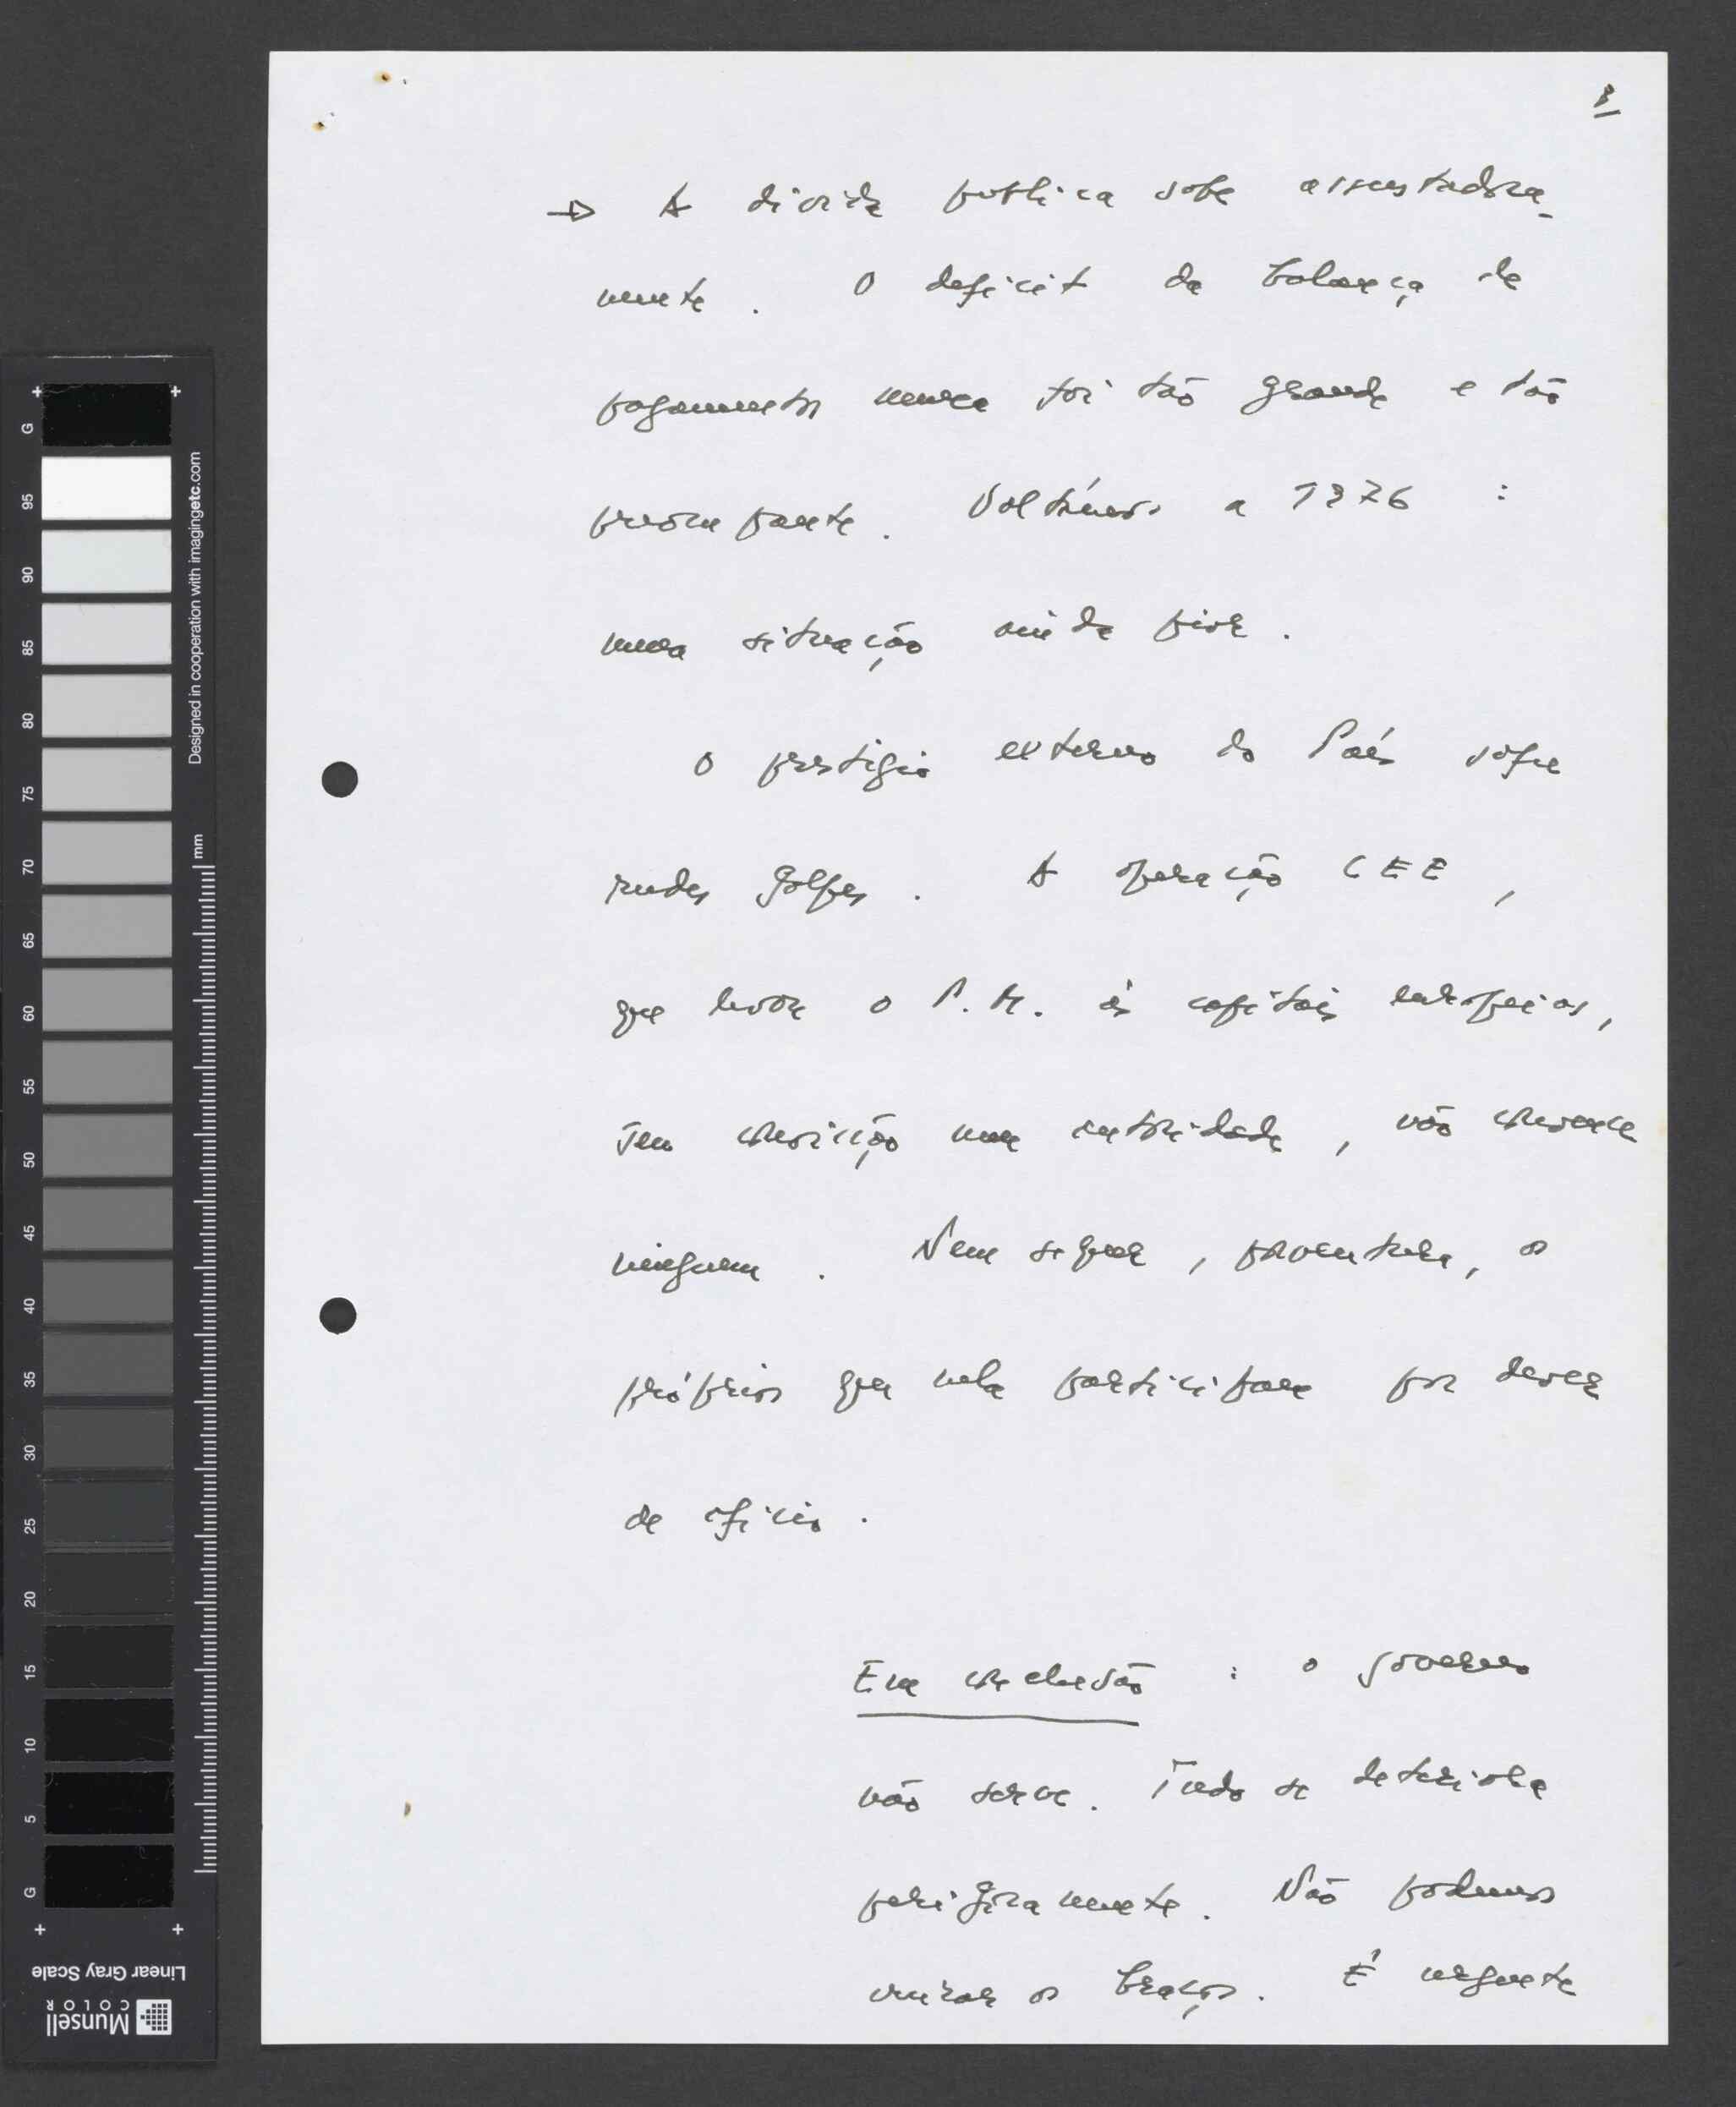 3
→ A divida publica sobe assustadora-
mente. O deficit da balança de
pagamentos nunca foi tão grande e tão
preocupante. Voltámos a 1976 :
numa situação ainda pior.
O prestigio externo do País sofre
rudes golpes. A operação CEE,
que levou o P.M. às capitais europeias,
sem convicção nem autoridade, não convence
ninguem. Nem sequer, porventura, os
próprios que nela participam por dever
de oficio.
Em conclusão : o governo
não serve. Tudo se deteriora
perigosamente. Não podemos
cruzar os braços. É urgente
G
95
90
85
80
75
70
65
60
55
50
45
40
35
30
25
20
15
10
5
G
mm
Designed in cooperation with imagingetc.com
Linear Gray Scale
Munsell
COLOR